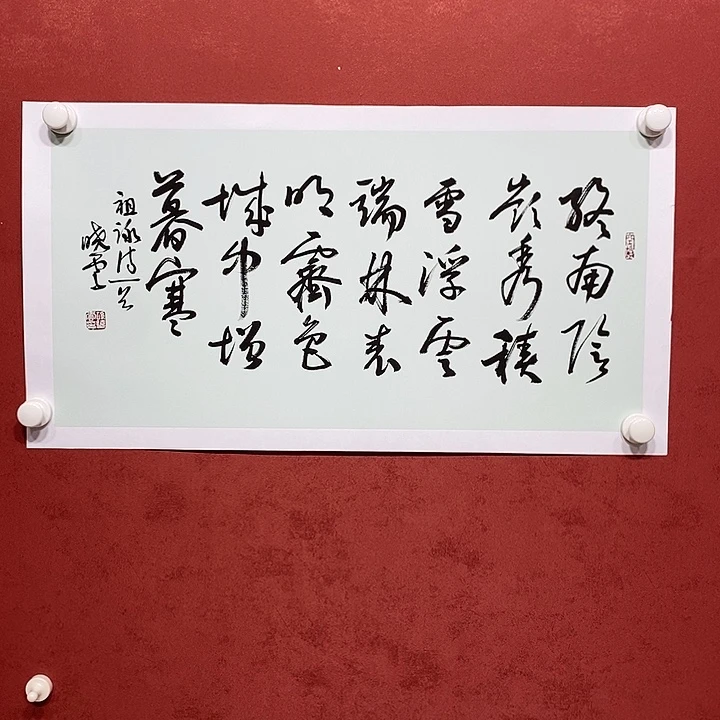 終南陰
嶺秀積
雪浮雲
端林表
明霽色
城中增
暮寒
祖詠詩一首
晓雲